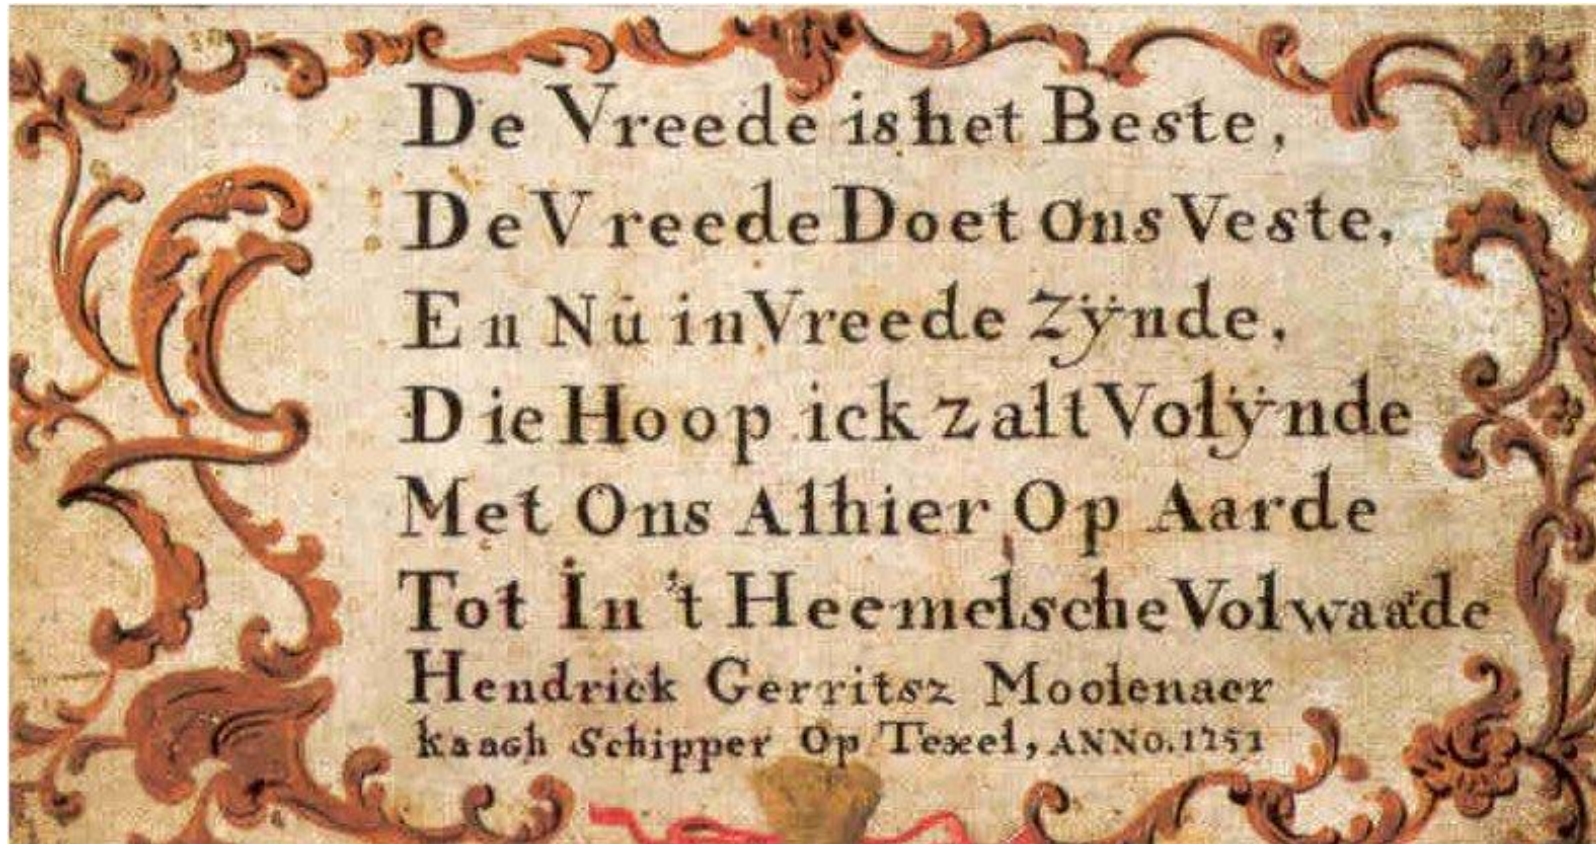 De Vreede is het Beste,
De Vreede Doet Ons Veste,
En Nŭ in Vreede Zÿnde,
Die Hoop ick zalt Volÿnde
Met Ons Alhier Op Aarde
Tot In 't Heemelsche Volwaarde
Hendrick Gerritsz Moolenaer
kaagh Schipper Op Texel, ANNO. 1751